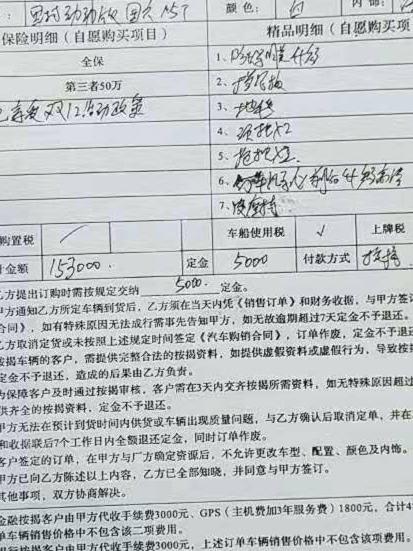 颜色：白 内饰：
保险明细（自愿购买项目） 精品明细（自愿购买项
全保 1、
第三者50万 2、挡泥板
双12活动政策 3、地毯
4、项枕X2
5、抱枕X2
6、
7、
购置税 / 车船使用税 √ 上牌税
计金额 153000. 定金 5000 付款方式 按揭
乙方提出订购时需按规定交纳 5000. 定金。
甲方通知乙方所定车辆到货后，乙方须在当天内凭《销售订单》和财务收据，与甲方签订
合同》，如有特殊原因无法成行需事先告知甲方，如无故逾期超过7天定金不予退还。
乙方取消定货或未按照上述规定时间签定《汽车购销合同》，订单作废，定金不予退
按揭车辆的客户，需提供完整合法的按揭资料，如提供虚假资料或虚假行为，导致按
定金不予退还，造成的后果由乙方负责。
为保障客户及时通过按揭审核，客户需在3天内交齐按揭所需资料，如无特殊原因超过
供齐全的按揭资料，定金不予退还。
甲方无法在预计到货时间内供货或车辆出现质量问题，与乙方确认后取消定单，并在
和收据联后7个工作日内全额退还定金，同时订单作废。
客户签定的订单，在甲方与厂方确定资源后，不允许更改车型、配置、颜色及内饰。
甲方已向乙方陈述以上内容，乙方已全部知晓，并同意与甲方签订。
其他事项，双方协商解决。
金融按揭客户由甲方代收手续费3000元、GPS（主机费加3年服务费）1800元，合计4
单车辆销售价格中不包含该二项费用。
银行按揭客户由甲方代收手续费3000元，上述订单车辆销售价格中不包含该项费用。